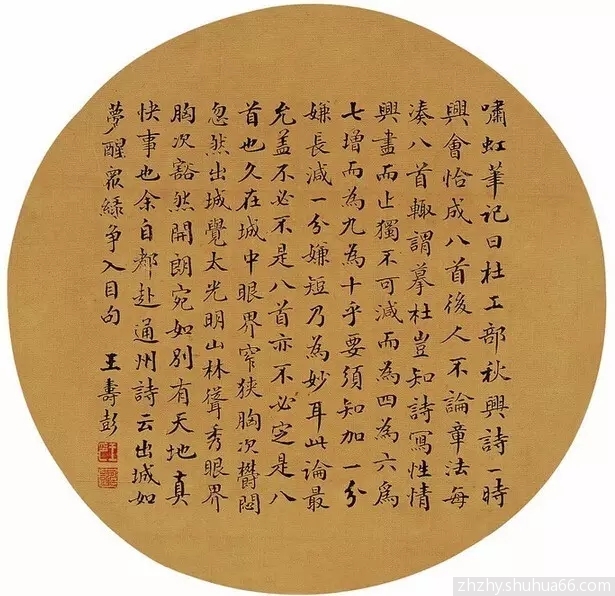 嘯虹筆記曰杜工部秋興詩一時
興會恰成八首後人不論章法每
湊八首輙謂摹杜豈知詩寫性情
興盡而止獨不可減而為四為六為
七增而為九為十乎要須知加一分
嫌長減一分嫌短乃為妙耳此論最
允盖不必不是八首亦不必定是八
首也久在城中眼界窄狹胸次鬱悶
忽然出城覺太光明山林聳秀眼界
胸次豁然開朗宛如別有天地真
快事也余自都赴通州詩云出城如
夢醒眾綠争入目句
王壽彭
zhzhy.shuhua66.com